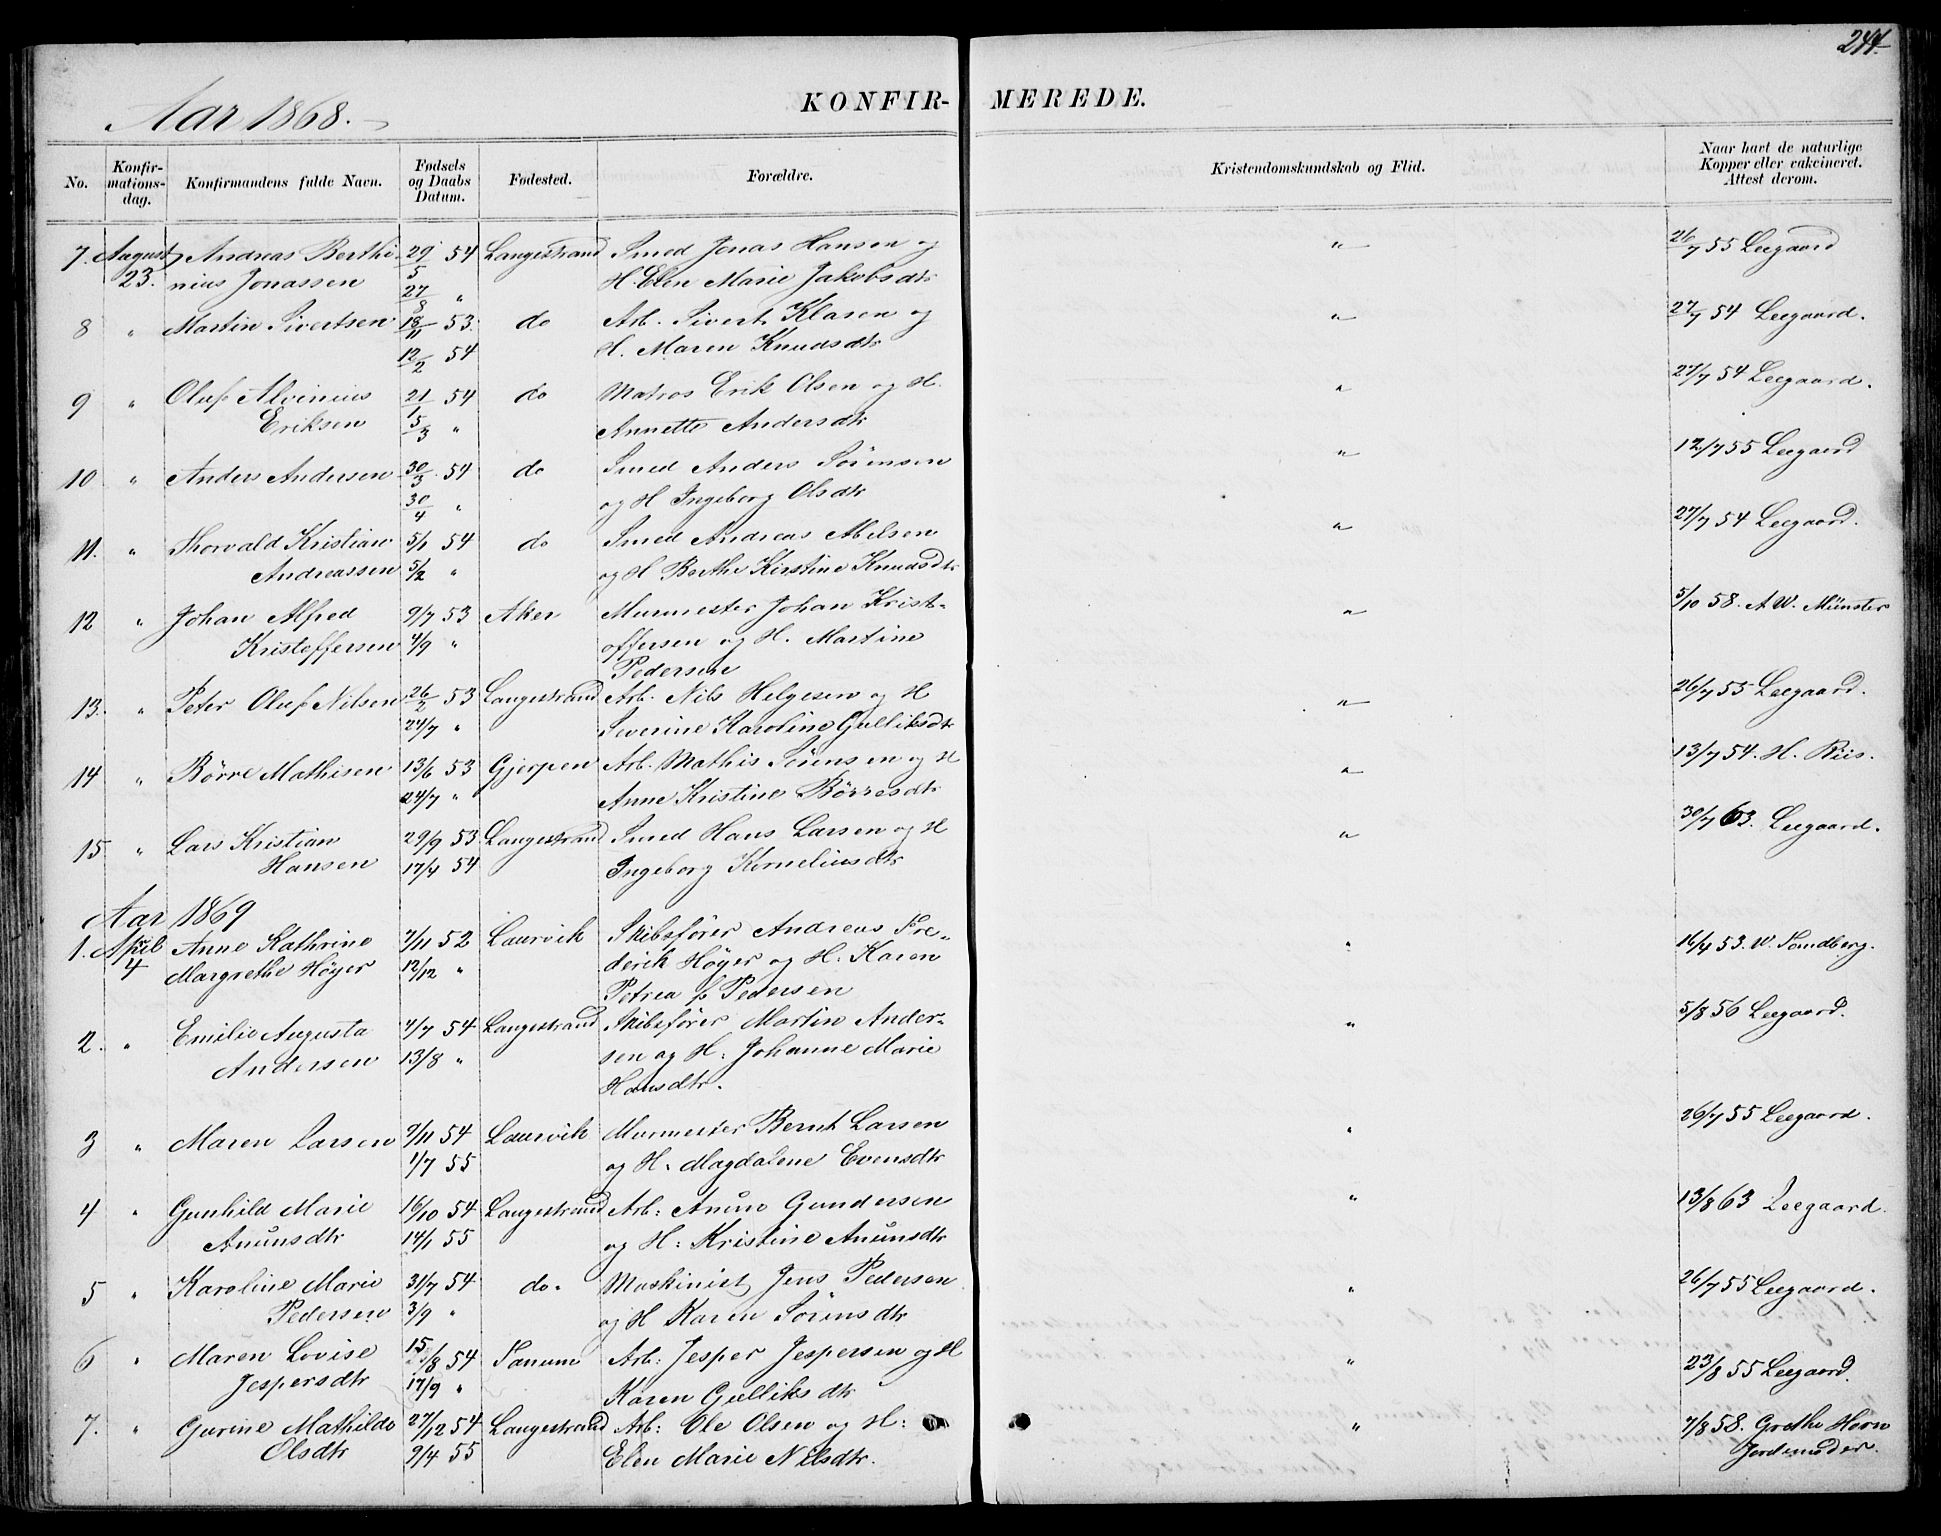 244
Aar 1868.
KONFIR- MEREDE.
No. Konfir-mations-dag. Konfirmandens fulde Navn. Fødsels og Daabs Datum. Fødested. Forældre. Kristendomskundskab og Flid. Naar havt de naturlige Kopper eller vakcineret. Attest derom.
7. August Andreas Berthi- 29/5 54 Langestrand Smed Jonas Hansen og " 26/7 55 Leegaard
23. nius Jonassen 27/8 " H. Elen Marie Jakobsdtr
8 " Martin Sivertsen 18/11 53. do Arb. Sivert Klasen og " 27/7 54 Leegaard.
12/2 54 H. Maren Knudsdtr
9 " Oluf Alvinius 21/1 54 do Matros Erik Olsen og H. " 27/7 54 Leegaard.
Eriksen 5/3 " Annette Andersdtr
10 " Anders Andersen 30/3 54 do Smed Anders Sörensen " 12/7 55 Leegaard
30/4 " og H Ingeborg Olsdtr
11. " Thorvald Kristian 5/1 54 do Smed Andreas Abelsen " 27/7 54 Leegaard.
Andreassen 5/2 " og H Berthe Kirstine Knudsdtr
12 " Johan Alfred 9/7 53 Aker Murmester Johan Krist- " 5/10 58. A W. Münster
Kristoffersen 4/9 " offersen og H. Martine
Pedersen
13. " Peter Oluf Nilsen 26/2 53 Langestrand Arb. Nils Helgesen og H " 26/7 55 Leegaard.
24/7 " Severine Karoline Gulliksdtr
14 " Börre Mathisen 13/6 53 Gjerpen Arb. Mathis Jensen og H " 13/7 54. H. Riis.
24/7 " Anne Kristine Börresdtr
15. " Lars Kristian 29/9 53 Langestrand Smed Hans Larsen og H " 30/7 63. Leegaard.
Hansen 17/4 54 Ingeborg Korneliusdtr
Aar 1869
1. April Anne Kathrine 7/11 52 Laurvik Skibsförer Andreas Fre- " 16/4 53. W. Sandberg.
4 Margrethe Höyer 12/12 " derik Höyer og H. Karen
Petrea f. Pedersen
2. " Emilie Augusta 4/7 54 Langestrand Skibsförer Martin Ander- " 5/8 56 Leegaard.
Andersen 13/8 " sen og H. Johanne Marie
Hansdtr.
3 " Maren Larsen 9/11 54 Laurvik Murmester Bernt Larsen " 26/7 55 Leegaard.
1/7 55 og H. Magdalene Evensdtr
4 " Gunhild Marie 16/10 54 Langestrand Arb: Anun Gundersen " 13/8 63 Leegaard.
Anunsdtr 14/1 55 og H: Kristine Anunsdtr
5 " Karoline Marie 31/7 54 do. Maskinist Jens Pedersen " 26/7 55 Leegaard.
Pedersen 3/9 " og H Karen Sörensdtr
6 " Maren Lovise 15/8 54 Tanum Arb: Jesper Jespersen og H " 23/8 55 Leegaard.
Jespersdtr 17/9 " Karen Gulliksdtr
7. " Gurine Mathilde 27/12 54 Langestrand Arb: Ole Olsen og H: " 7/8 58. Grethe Horn
Olsdtr 9/4 55 Elen Marie Nilsdtr. Jordemoder.